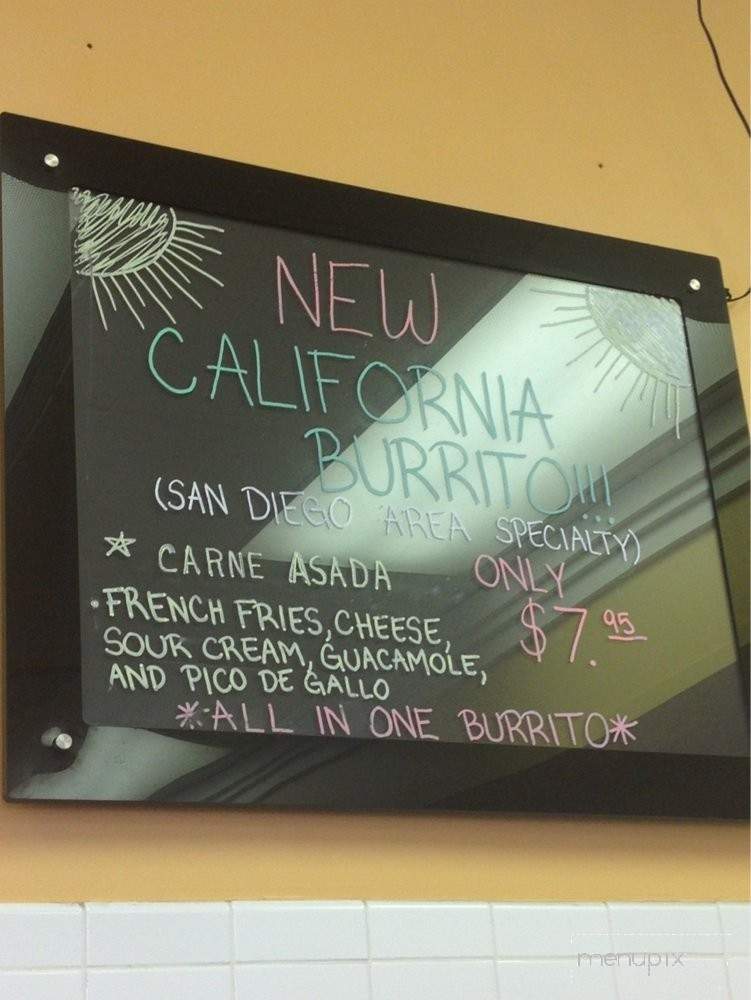 NEW
CALIFORNIA
BURRITO!!!
(SAN DIEGO AREA SPECIALTY)
☆ CARNE ASADA
ONLY
$7.95
•FRENCH FRIES, CHEESE,
SOUR CREAM, GUACAMOLE,
AND PICO DE GALLO
*ALL IN ONE BURRITO*
menupix